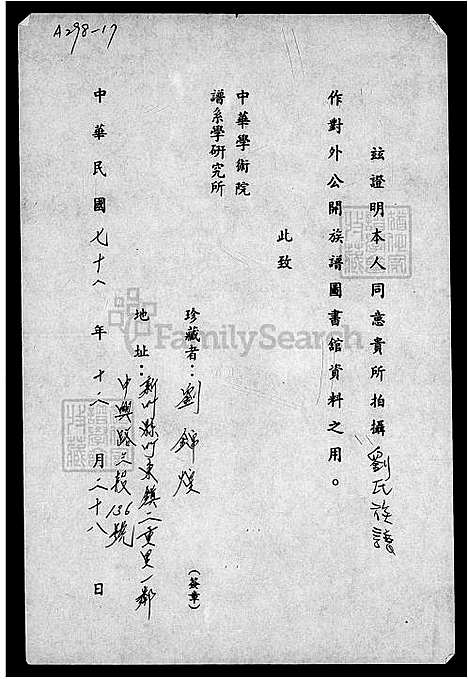 A298-17
茲證明本人同意貴所拍攝劉氏族譜
作對外公開族譜圖書館資料之用。
此致
中華學術院
譜系學研究所
珍藏者：劉錦
(簽章)
地址：新竹縣竹東鎮二重里一鄰
中興路三段136號
中華民國七十八年十月二十八日
FamilySearch